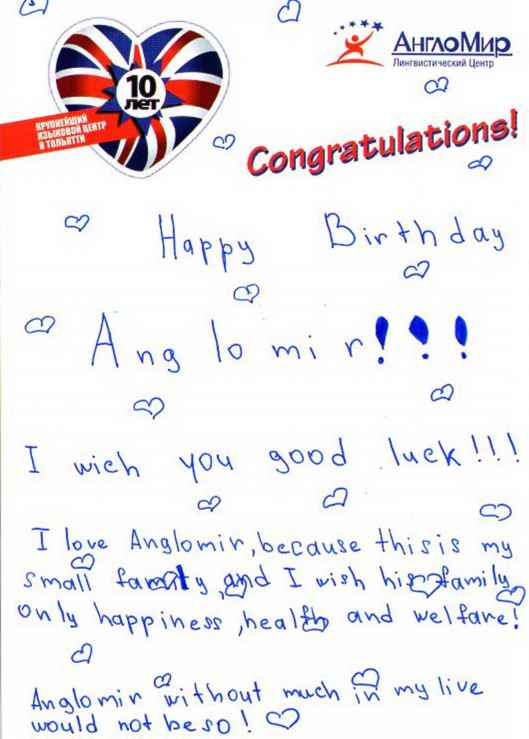 10
лет
КРУПНЕЙШИЙ
ЯЗЫКОВОЙ ЦЕНТР
В ТОЛЬЯТТИ
АнглоМир
Лингвистический Центр
Congratulations!
Happy Birthday
Anglomir!!!
I wich you good luck!!!
I love Anglomir, because this is my
small family, and I wish his family
only happiness, health and welfare!
Anglomir without much in my live
would not be so!